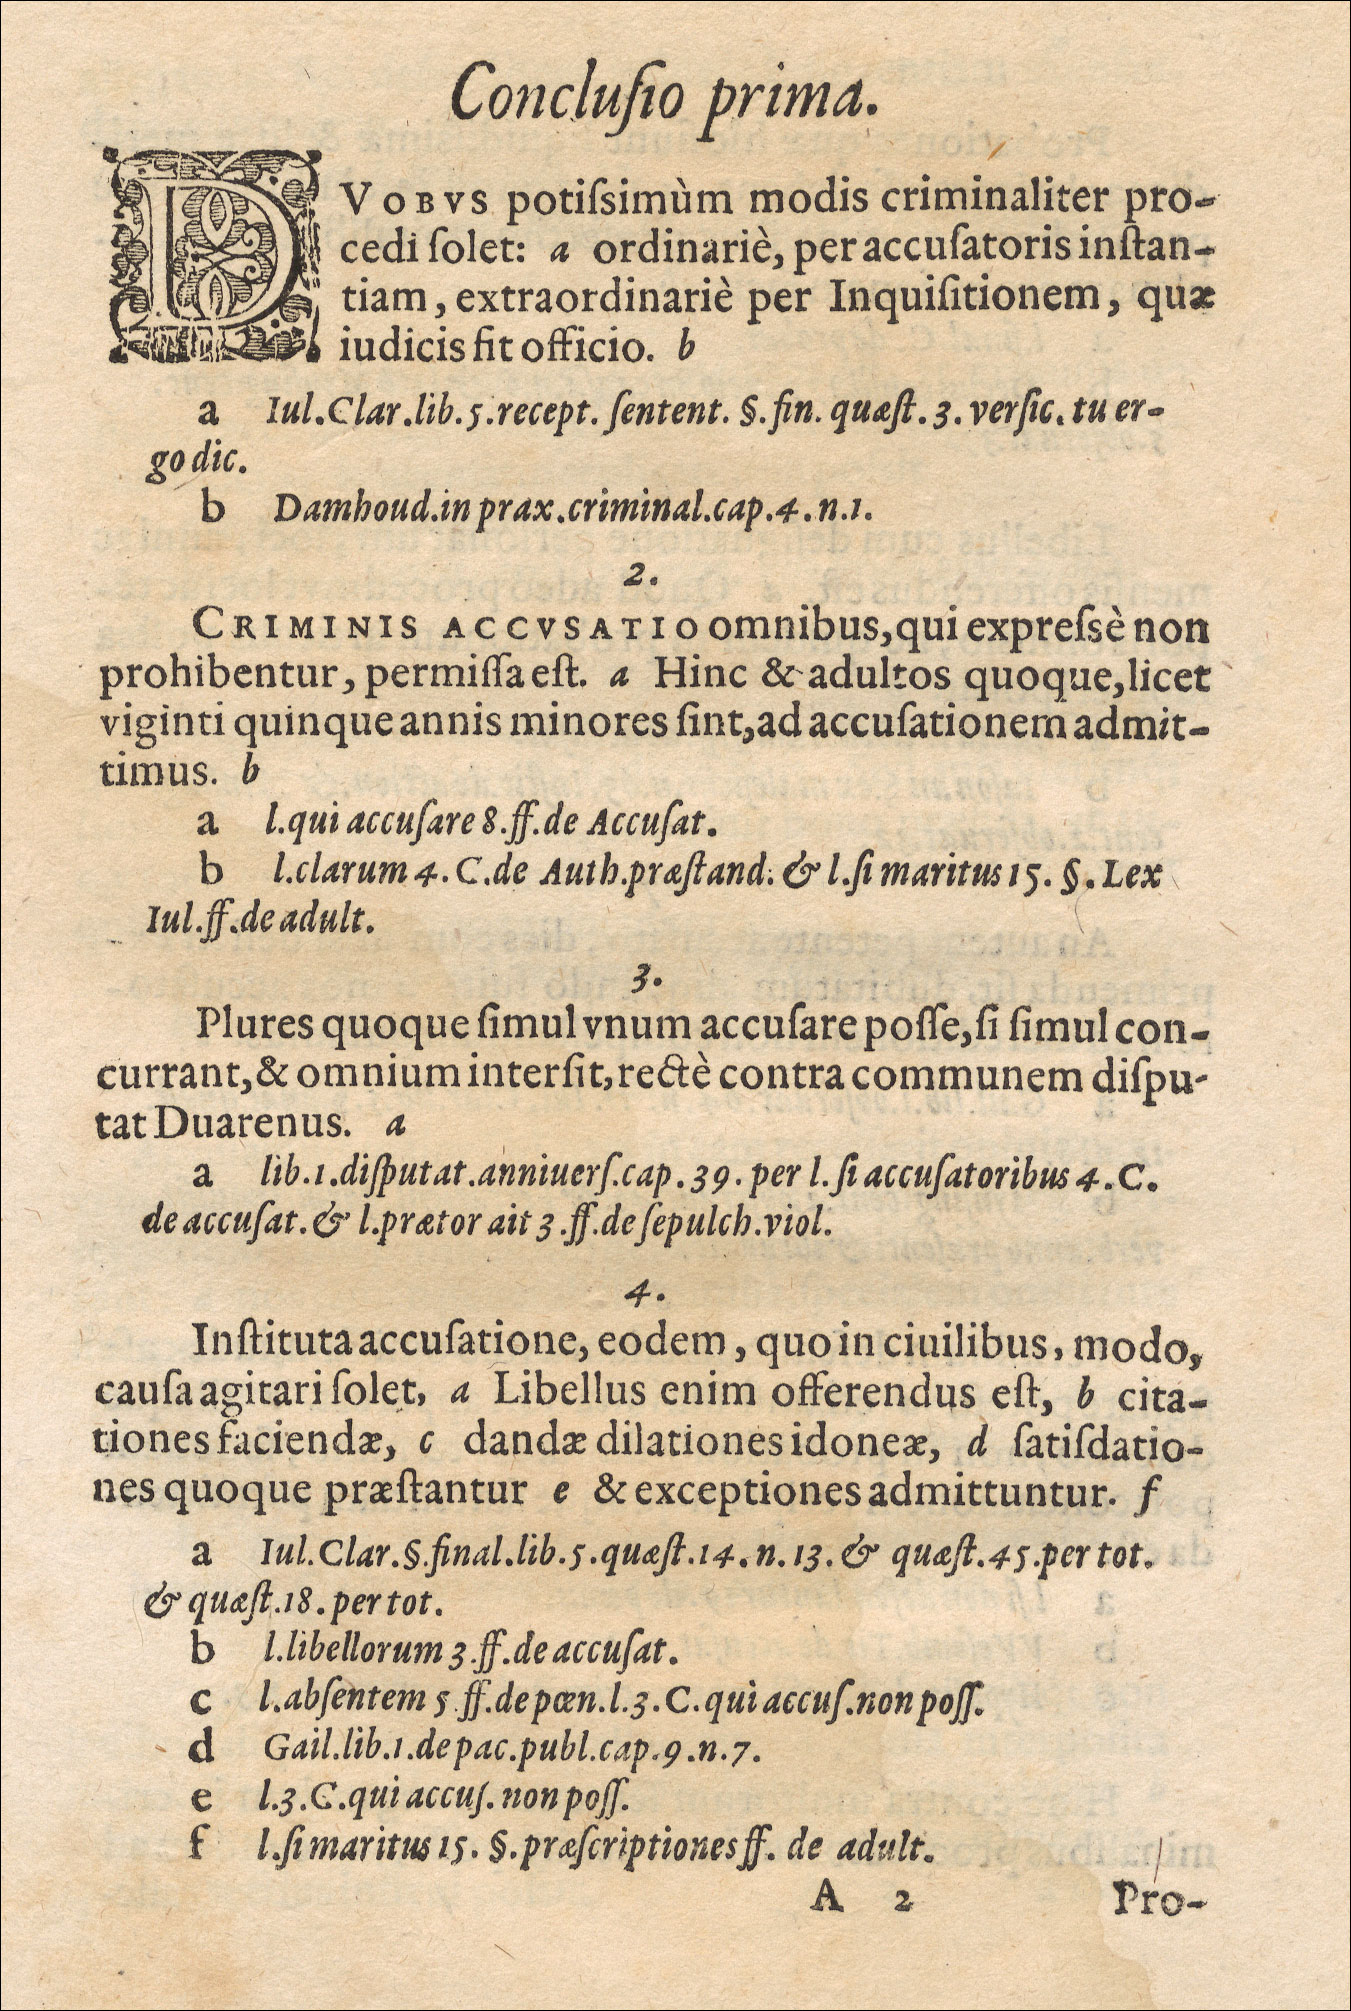 Concluſio prima.
DVOBVS potiſsimùm modis criminaliter pro-
cedi ſolet: a ordinariè, per accuſatoris inſtan-
tiam, extraordinariè per Inquiſitionem, quæ
iudicis fit officio. b
a Iul.Clar.lib.5.recept. ſentent. §.fin. quæſt. 3. verſic. tu er-
go dic.
b Damhoud.in prax.criminal.cap.4.n.1.
2.
CRIMINIS ACCVSATIO omnibus, qui expreſsè non
prohibentur, permiſſa eſt. a Hinc & adultos quoque, licet
viginti quinque annis minores ſint, ad accuſationem admit-
timus. b
a l.qui accuſare 8.ff.de Accuſat.
b l.clarum 4. C.de Auth.præſtand. & l.ſi maritus 15. §. Lex
Iul.ff.de adult.
3.
Plures quoque ſimul vnum accuſare poſſe, ſi ſimul con-
currant, & omnium interſit, rectè contra communem diſpu-
tat Duarenus. a
a lib.1.diſputat.anniuerſ.cap.39. per l. ſi accuſatoribus 4.C.
de accuſat.& l.prætor ait 3.ff.de ſepulch.viol.
4.
Inſtituta accuſatione, eodem, quo in ciuilibus, modo,
cauſa agitari ſolet, a Libellus enim offerendus eſt, b cita-
tiones faciendæ, c dandæ dilationes idoneæ, d ſatiſdatio-
nes quoque præſtantur e & exceptiones admittuntur. f
a Iul.Clar.§.final.lib.5.quæſt.14.n.13.& quæſt.45.per tot.
& quæſt.18.per tot.
b l.libellorum 3.ff.de accuſat.
c l.abſentem 5 ff.de pœn.l.3.C.qui accuſ.non poſſ.
d Gail.lib.1.de pac.publ.cap.9.n.7.
e l.3.C.qui accuſ.non poſſ.
f l.ſi maritus 15. §.præſcriptiones ff. de adult.
A 2 Pro-